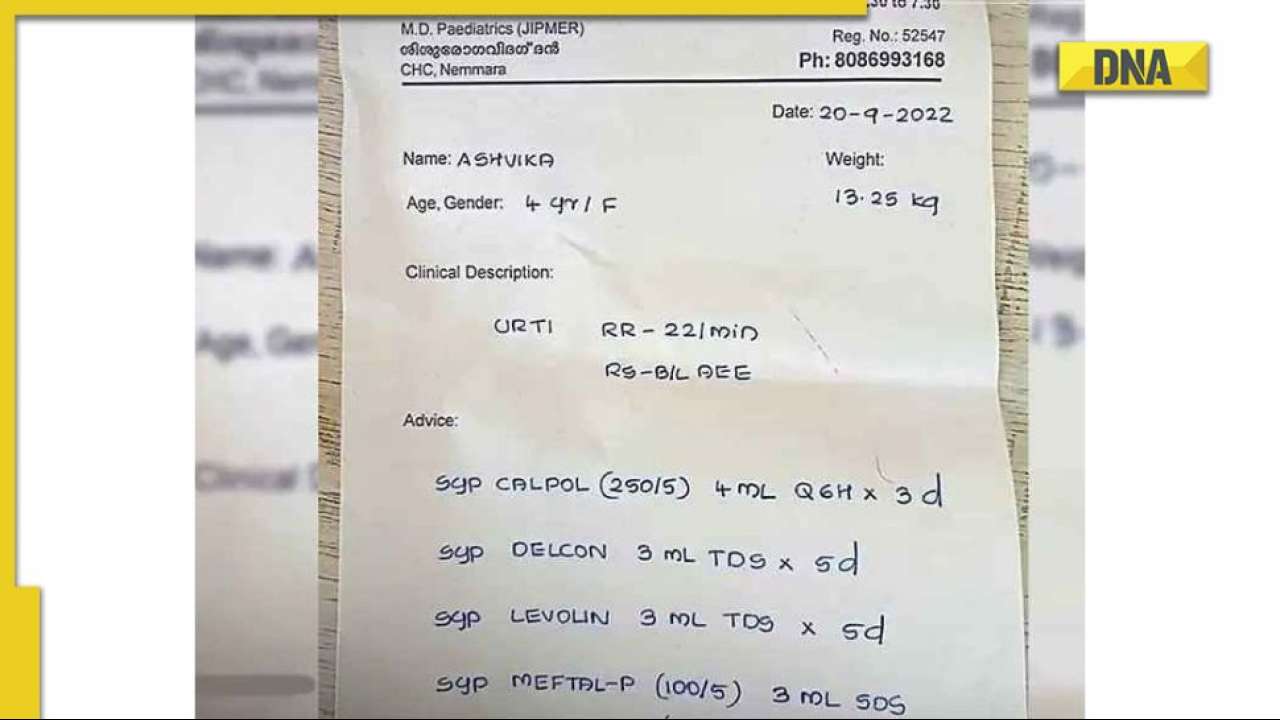 M.D. Paediatrics (JIPMER)
Reg. No.: 52547
ശിശുരോഗവിദഗ്ദ്ധൻ
CHC, Nemmara
Ph: 8086993168
DNA
Date: 20-9-2022
Name: ASHVIKA
Weight:
Age, Gender: 4 yr / F
13.25 kg
Clinical Description:
URTI RR - 22/min
RS - B/L AEE
Advice:
Syp CALPOL (250/5) 4 mL Q6H x 3d
Syp DELCON 3 mL TDS x 5d
Syp LEVOLIN 3 mL TDS x 5d
Syp MEFTAL-P (100/5) 3 mL SOS